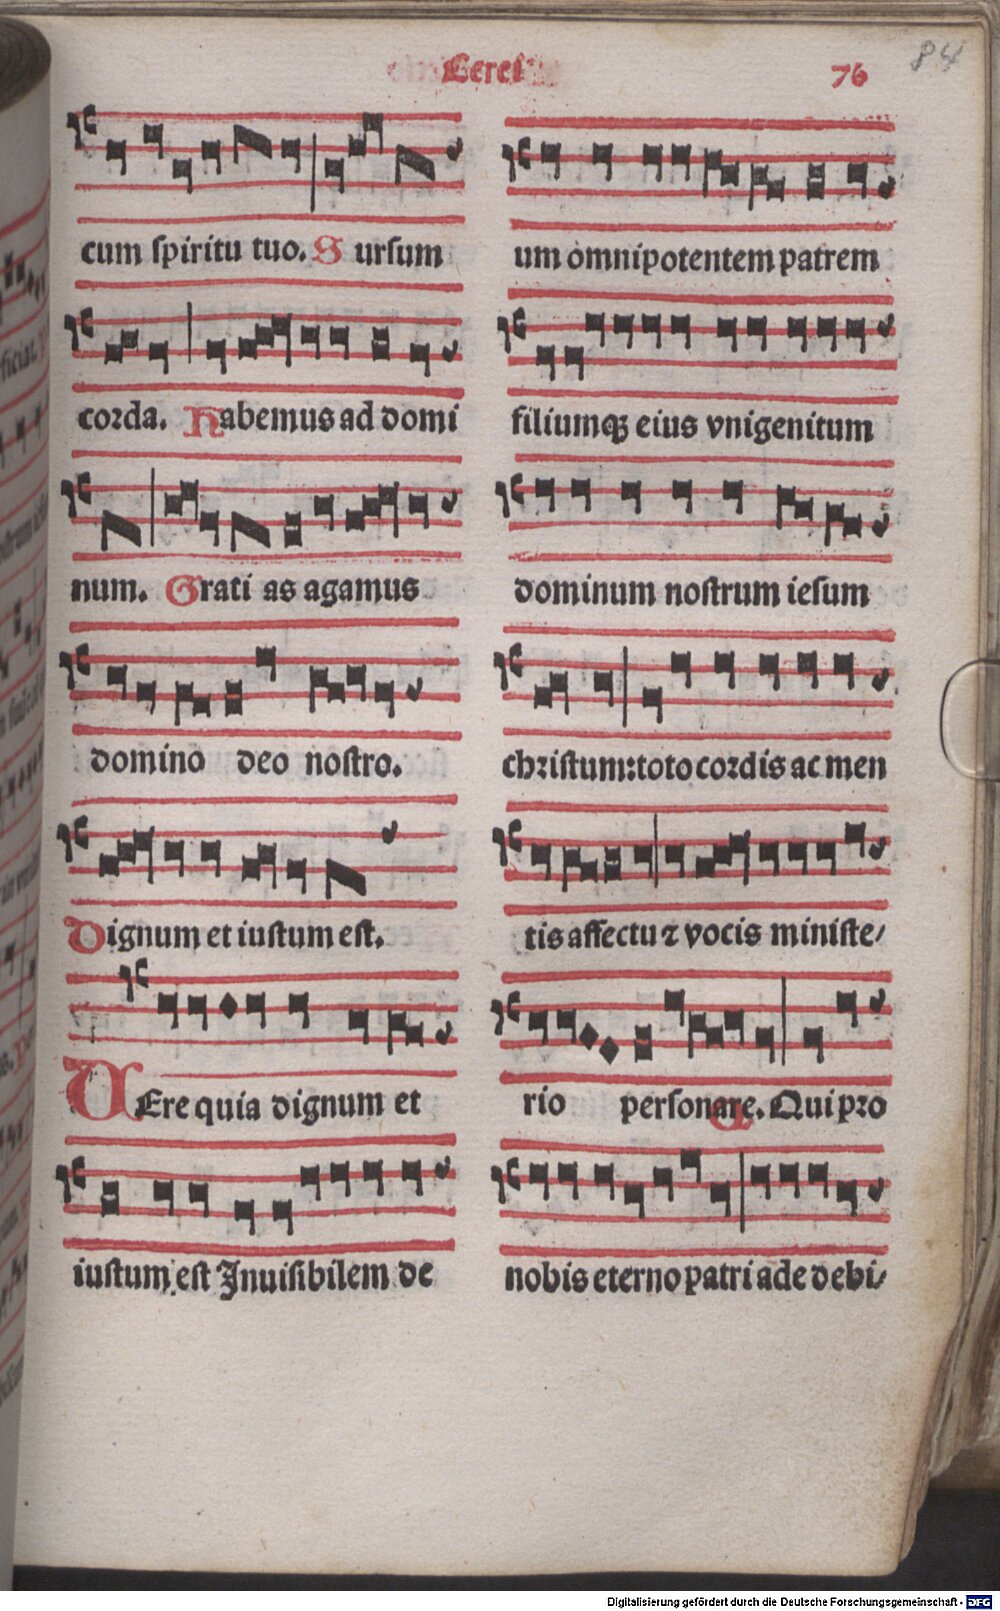 Cerei
76
84
cum ſpiritu tuo. S urſum
corda. Habemus ad domi
num. Grati as agamus
domino deo noſtro.
Dignum et iuſtum eſt.
VEre quia dignum et
iuſtum eſt Inuiſibilem de
um omnipotentem patrem
filiumqꝫ eius vnigenitum
dominum noſtrum ieſum
chꝛiſtum:toto coꝛdis ac men
tis affectu ⁊ vocis miniſte/
rio perſonare. Qui pꝛo
nobis eterno patri ade debi/
Digitalisierung gefördert durch die Deutsche Forschungsgemeinschaft - DFG